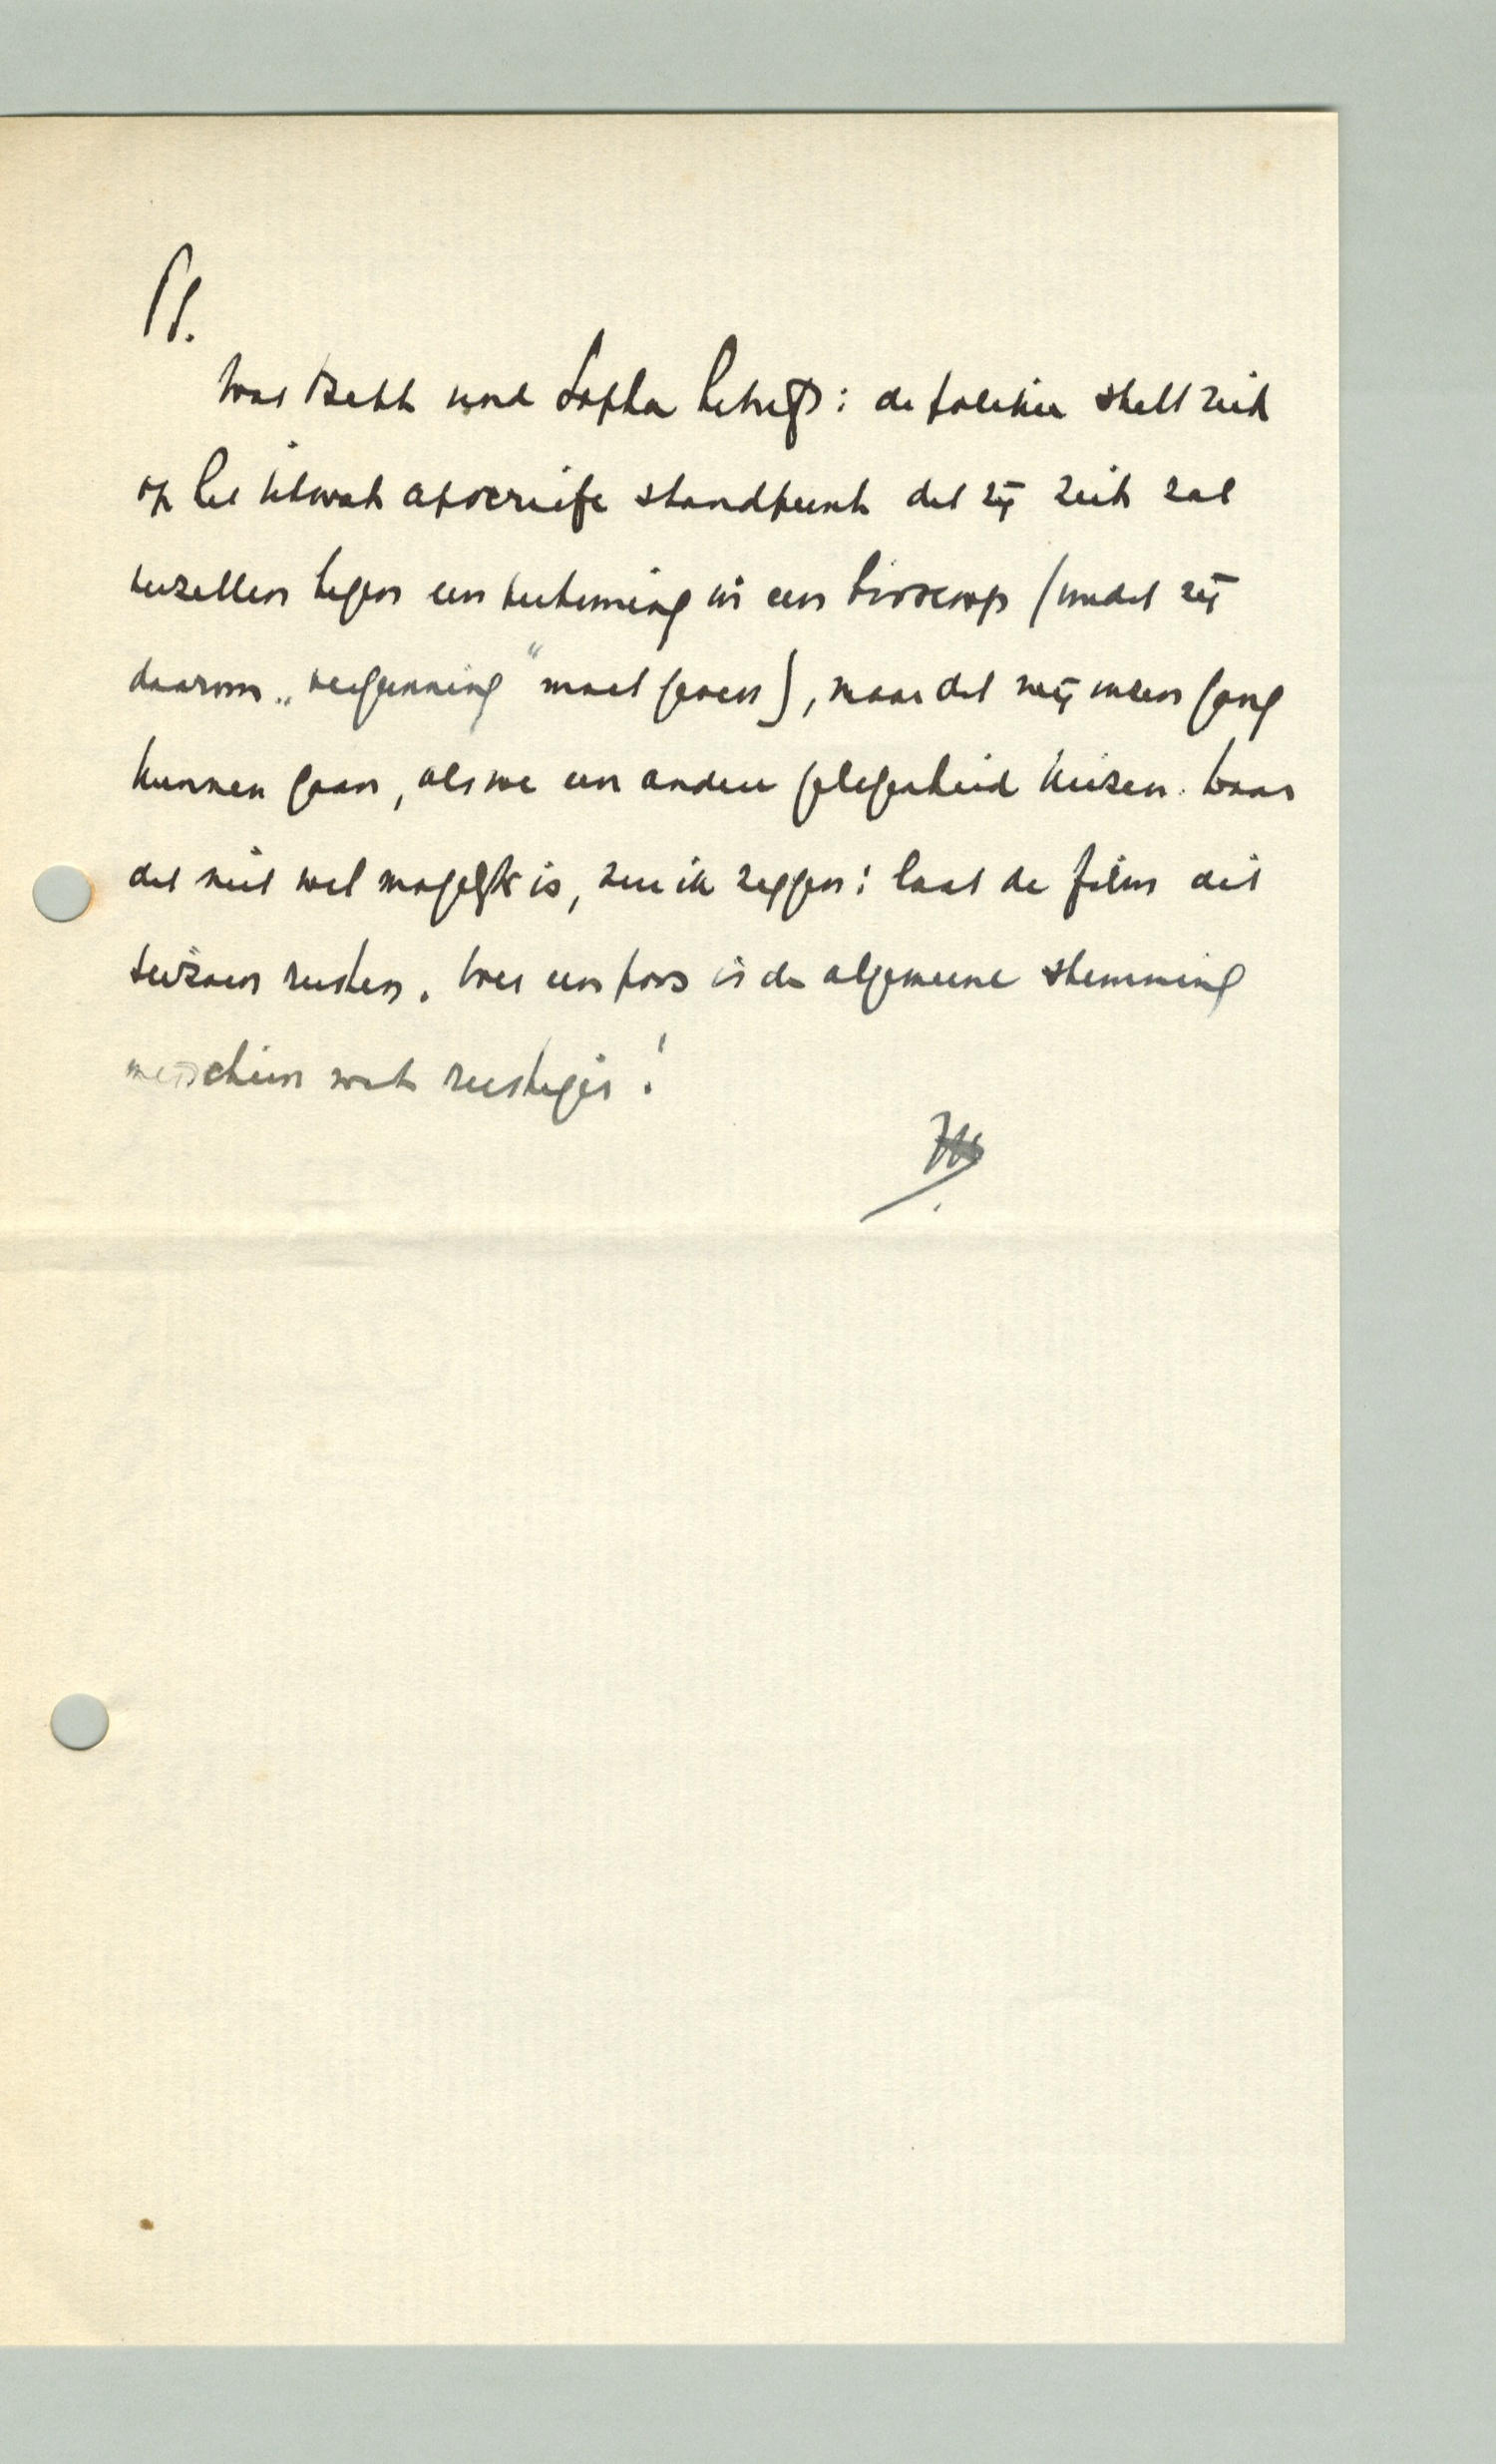 PS.
Wat betreft: de politie stelt zich
op het ietwat apocriefe standpunt dat zij zich zal
verzetten tegen een vertooning in een bioscoop (omdat zij
daarvoor „vergunning" moet geven), maar dat wij onzen gang
kunnen gaan, als we een andere gelegenheid kiezen. Waar
dat niet wel mogelijk is, zou ik zeggen: laat de film dit
seizoen rusten. Over een poos is de algemeene stemming
misschien wat rustiger!